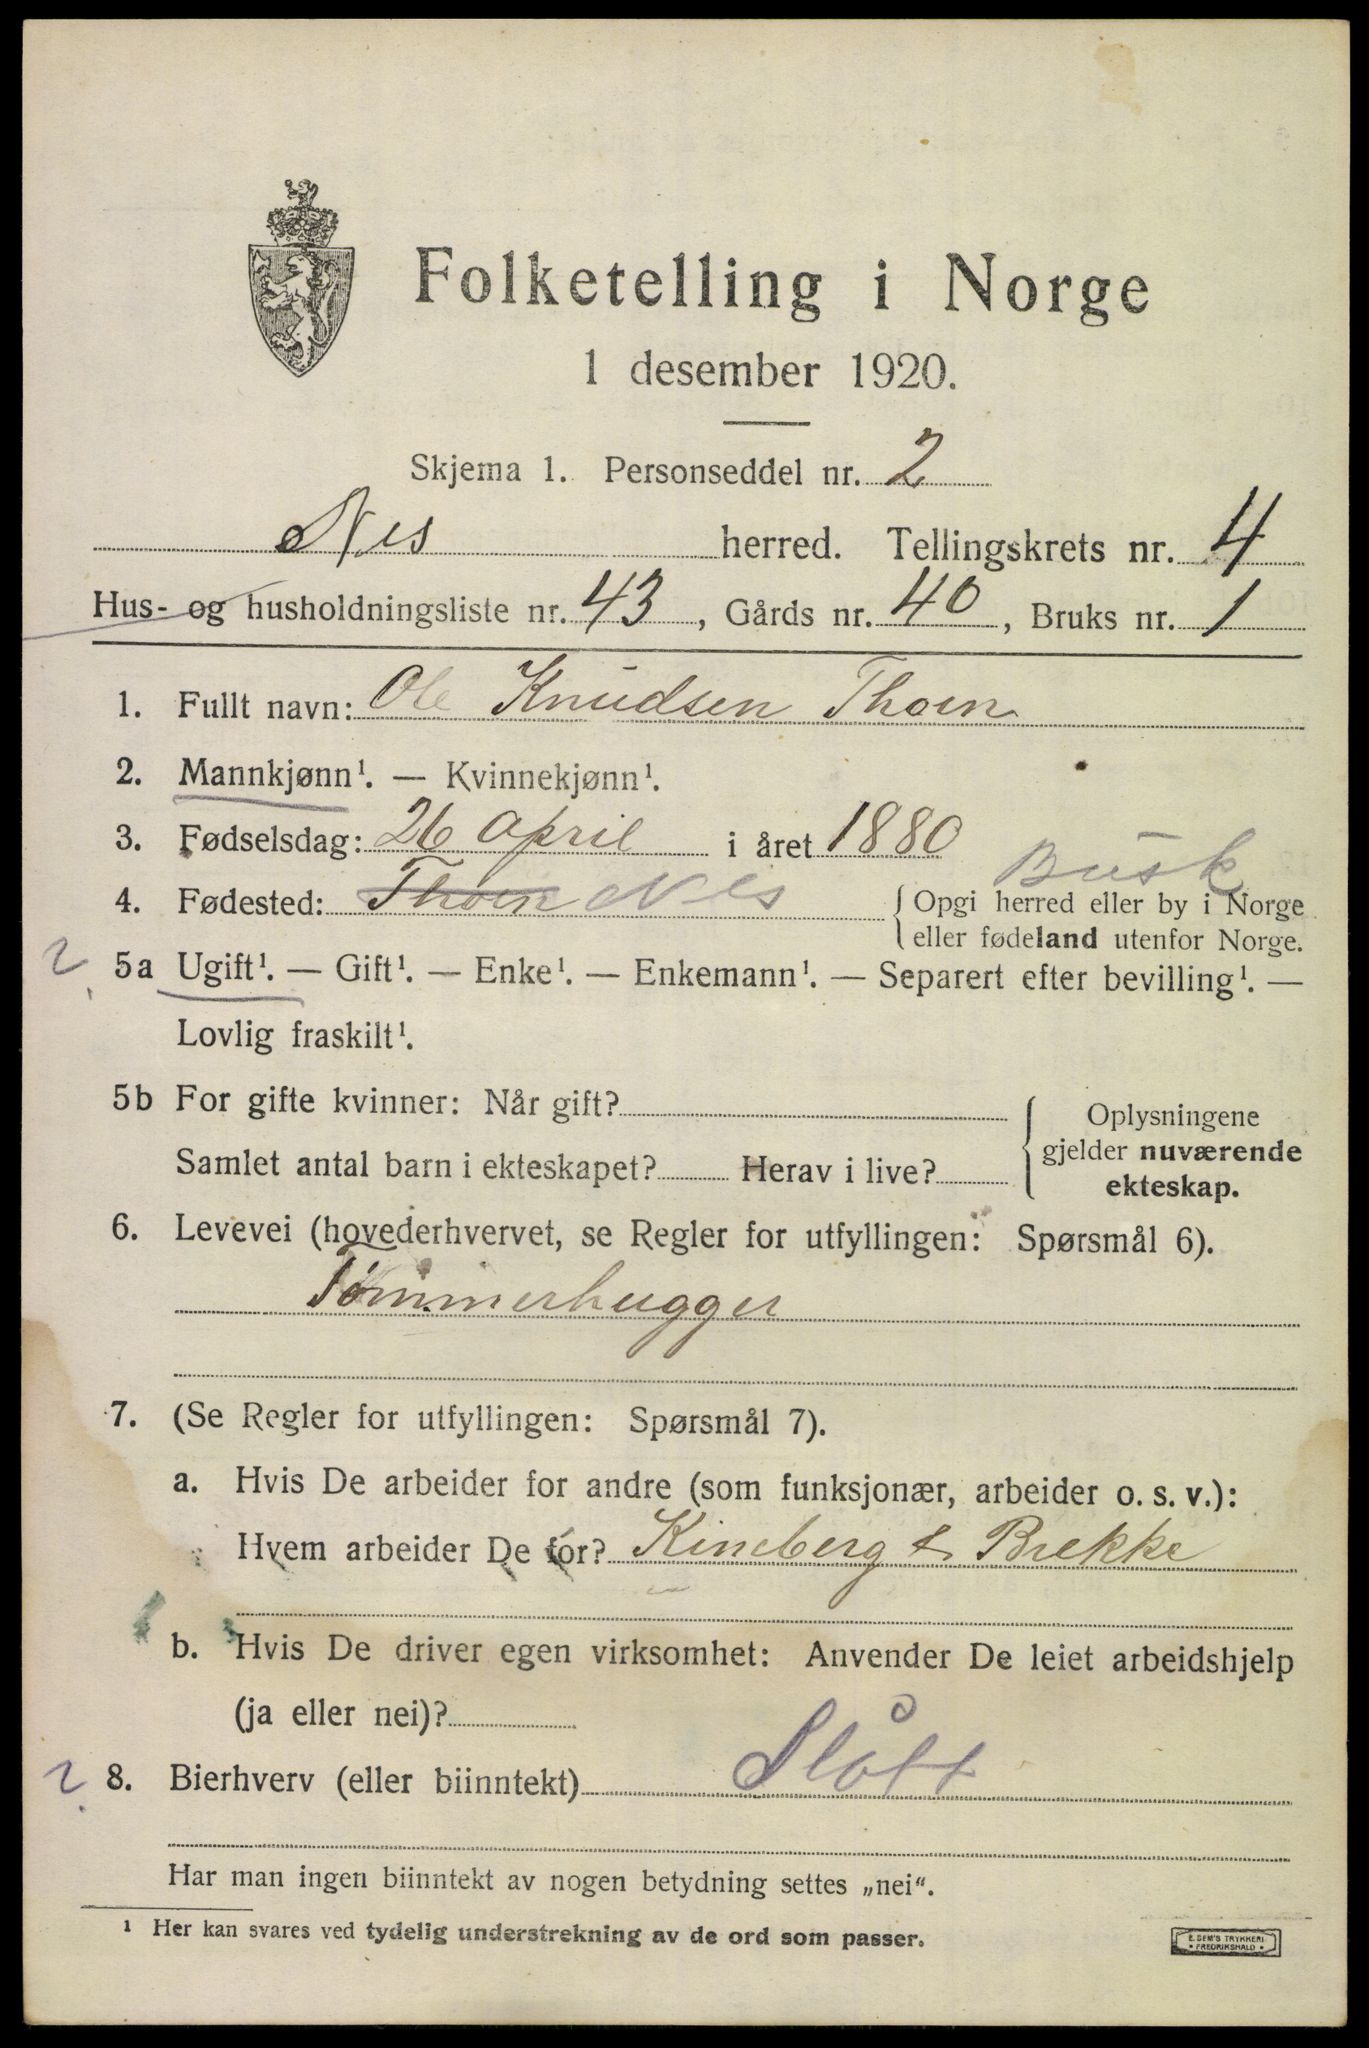 Folketelling i Norge
1 desember 1920.
Skjema 1. Personseddel nr. 2
Nes herred. Tellingskrets nr. 4
Hus- og husholdningsliste nr. 43, Gårds nr. 40, Bruks nr. 1
1. Fullt navn: Ole Knudsen Thoen
2. Mannkjønn¹. — Kvinnekjønn¹.
3. Fødselsdag: 26 April i året 1880
Busk
4. Fødested: Thoen Nes { Opgi herred eller by i Norge
eller fødeland utenfor Norge.
5a Ugift¹. — Gift¹. — Enke¹. — Enkemann¹. — Separert efter bevilling¹. —
Lovlig fraskilt¹.
5b For gifte kvinner: Når gift? { Oplysningene
gjelder nuværende
Samlet antal barn i ekteskapet? Herav i live? ekteskap.
6. Levevei (hovederhvervet, se Regler for utfyllingen: Spørsmål 6).
Tømmerhugger
7. (Se Regler for utfyllingen: Spørsmål 7).
a. Hvis De arbeider for andre (som funksjonær, arbeider o. s. v.):
Hvem arbeider De for? Kineberg & Brekke
b. Hvis De driver egen virksomhet: Anvender De leiet arbeidshjelp
(ja eller nei)?
8. Bierhverv (eller biinntekt) Slått
Har man ingen biinntekt av nogen betydning settes „nei".
¹ Her kan svares ved tydelig understrekning av de ord som passer.
E. SEM'S TRYKKERI
• FREDRIKSHALD •